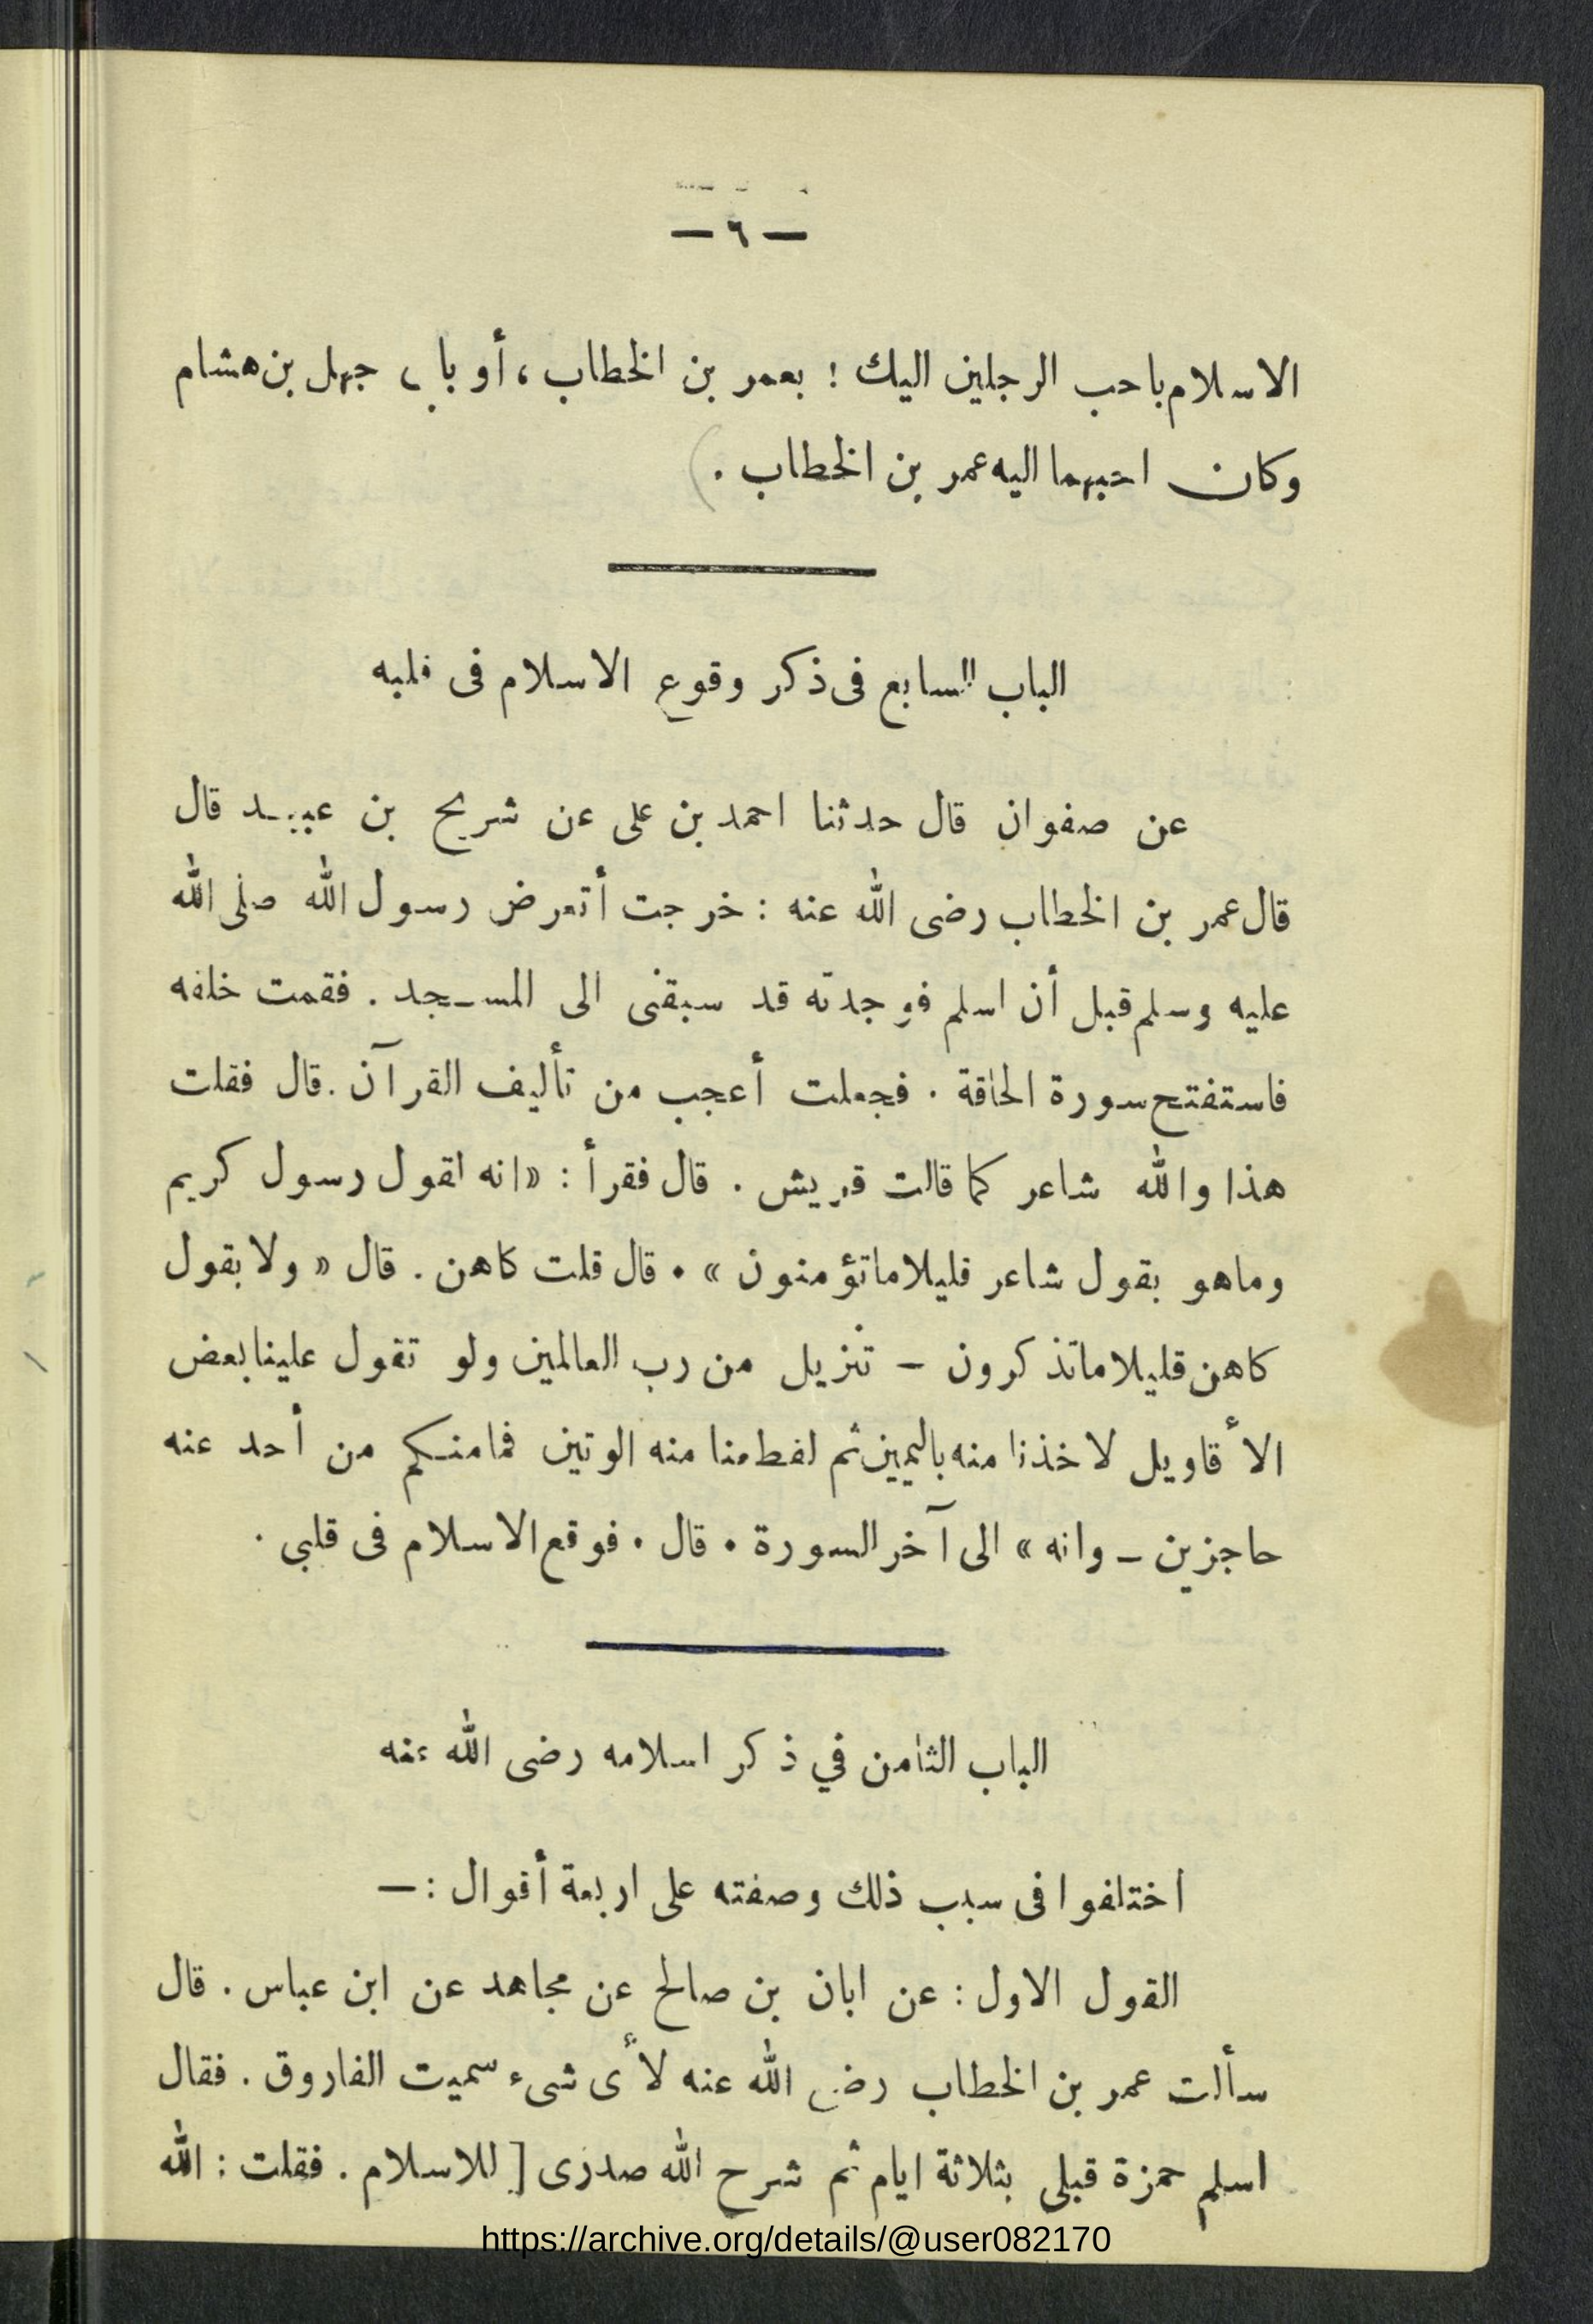 — ٦ —
الاسلام باحب الرجلين اليك ! بعمر بن الخطاب ، أو بابى جهل بن هشام
وكان احبهما اليه عمر بن الخطاب . )
الباب السابع فى ذكر وقوع الاسلام فى قلبه
عن صفوان قال حدثنا احمد بن على عن شريح بن عبيد قال
قال عمر بن الخطاب رضى الله عنه : خرجت أتعرض رسول الله صلى الله
عليه وسلم قبل أن اسلم فوجدته قد سبقنى الى المسجد . فقمت خلفه
فاستفتح سورة الحاقة . فجعلت أعجب من تأليف القرآن . قال فقلت
هذا والله شاعر كما قالت قريش . قال فقرأ : « انه لقول رسول كريم
وماهو بقول شاعر قليلا ماتؤمنون » . قال قلت كاهن . قال « ولا بقول
كاهن قليلا ماتذكرون – تنزيل من رب العالمين ولو تقول علينا بعض
الأقاويل لاخذنا منه باليمين ثم لقطعنا منه الوتين فما منكم من أحد عنه
حاجزين – وانه » الى آخر السورة . قال . فوقع الاسلام فى قلبي .
الباب الثامن في ذكر اسلامه رضى الله عنه
اختلفوا فى سبب ذلك وصفته على اربعة أقوال : —
القول الاول : عن ابان بن صالح عن مجاهد عن ابن عباس . قال
سألت عمر بن الخطاب رضى الله عنه لأى شىء سميت الفاروق . فقال
اسلم حمزة قبلى بثلاثة ايام ثم شرح الله صدرى [ للاسلام . فقلت : الله
https://archive.org/details/@user082170